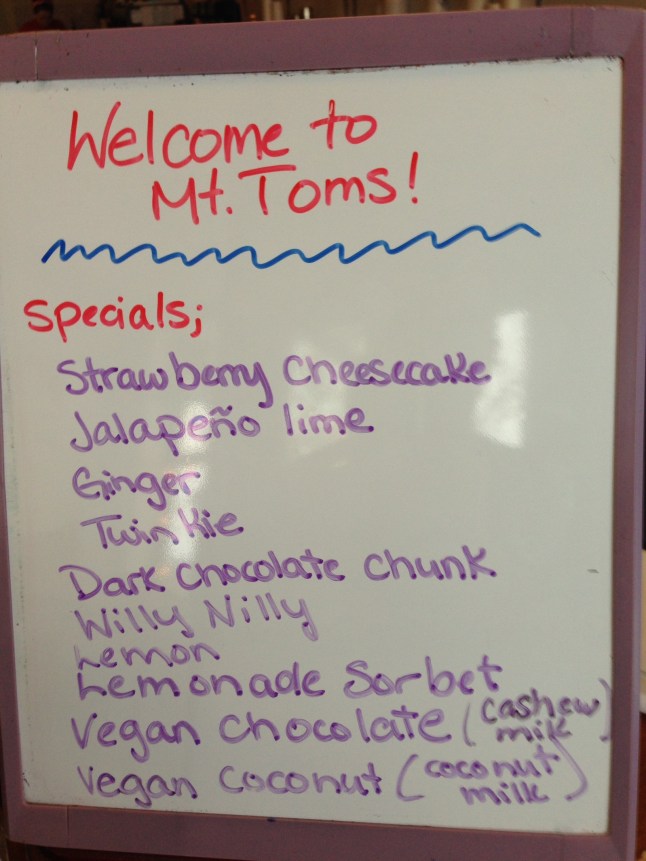 Welcome to
Mt. Toms!
Specials;
Strawberry Cheesecake
Jalapeño lime
Ginger
Twinkie
Dark Chocolate Chunk
Willy Nilly
Lemon
Lemonade Sorbet
Vegan Chocolate (cashew milk)
Vegan Coconut (coconut milk)